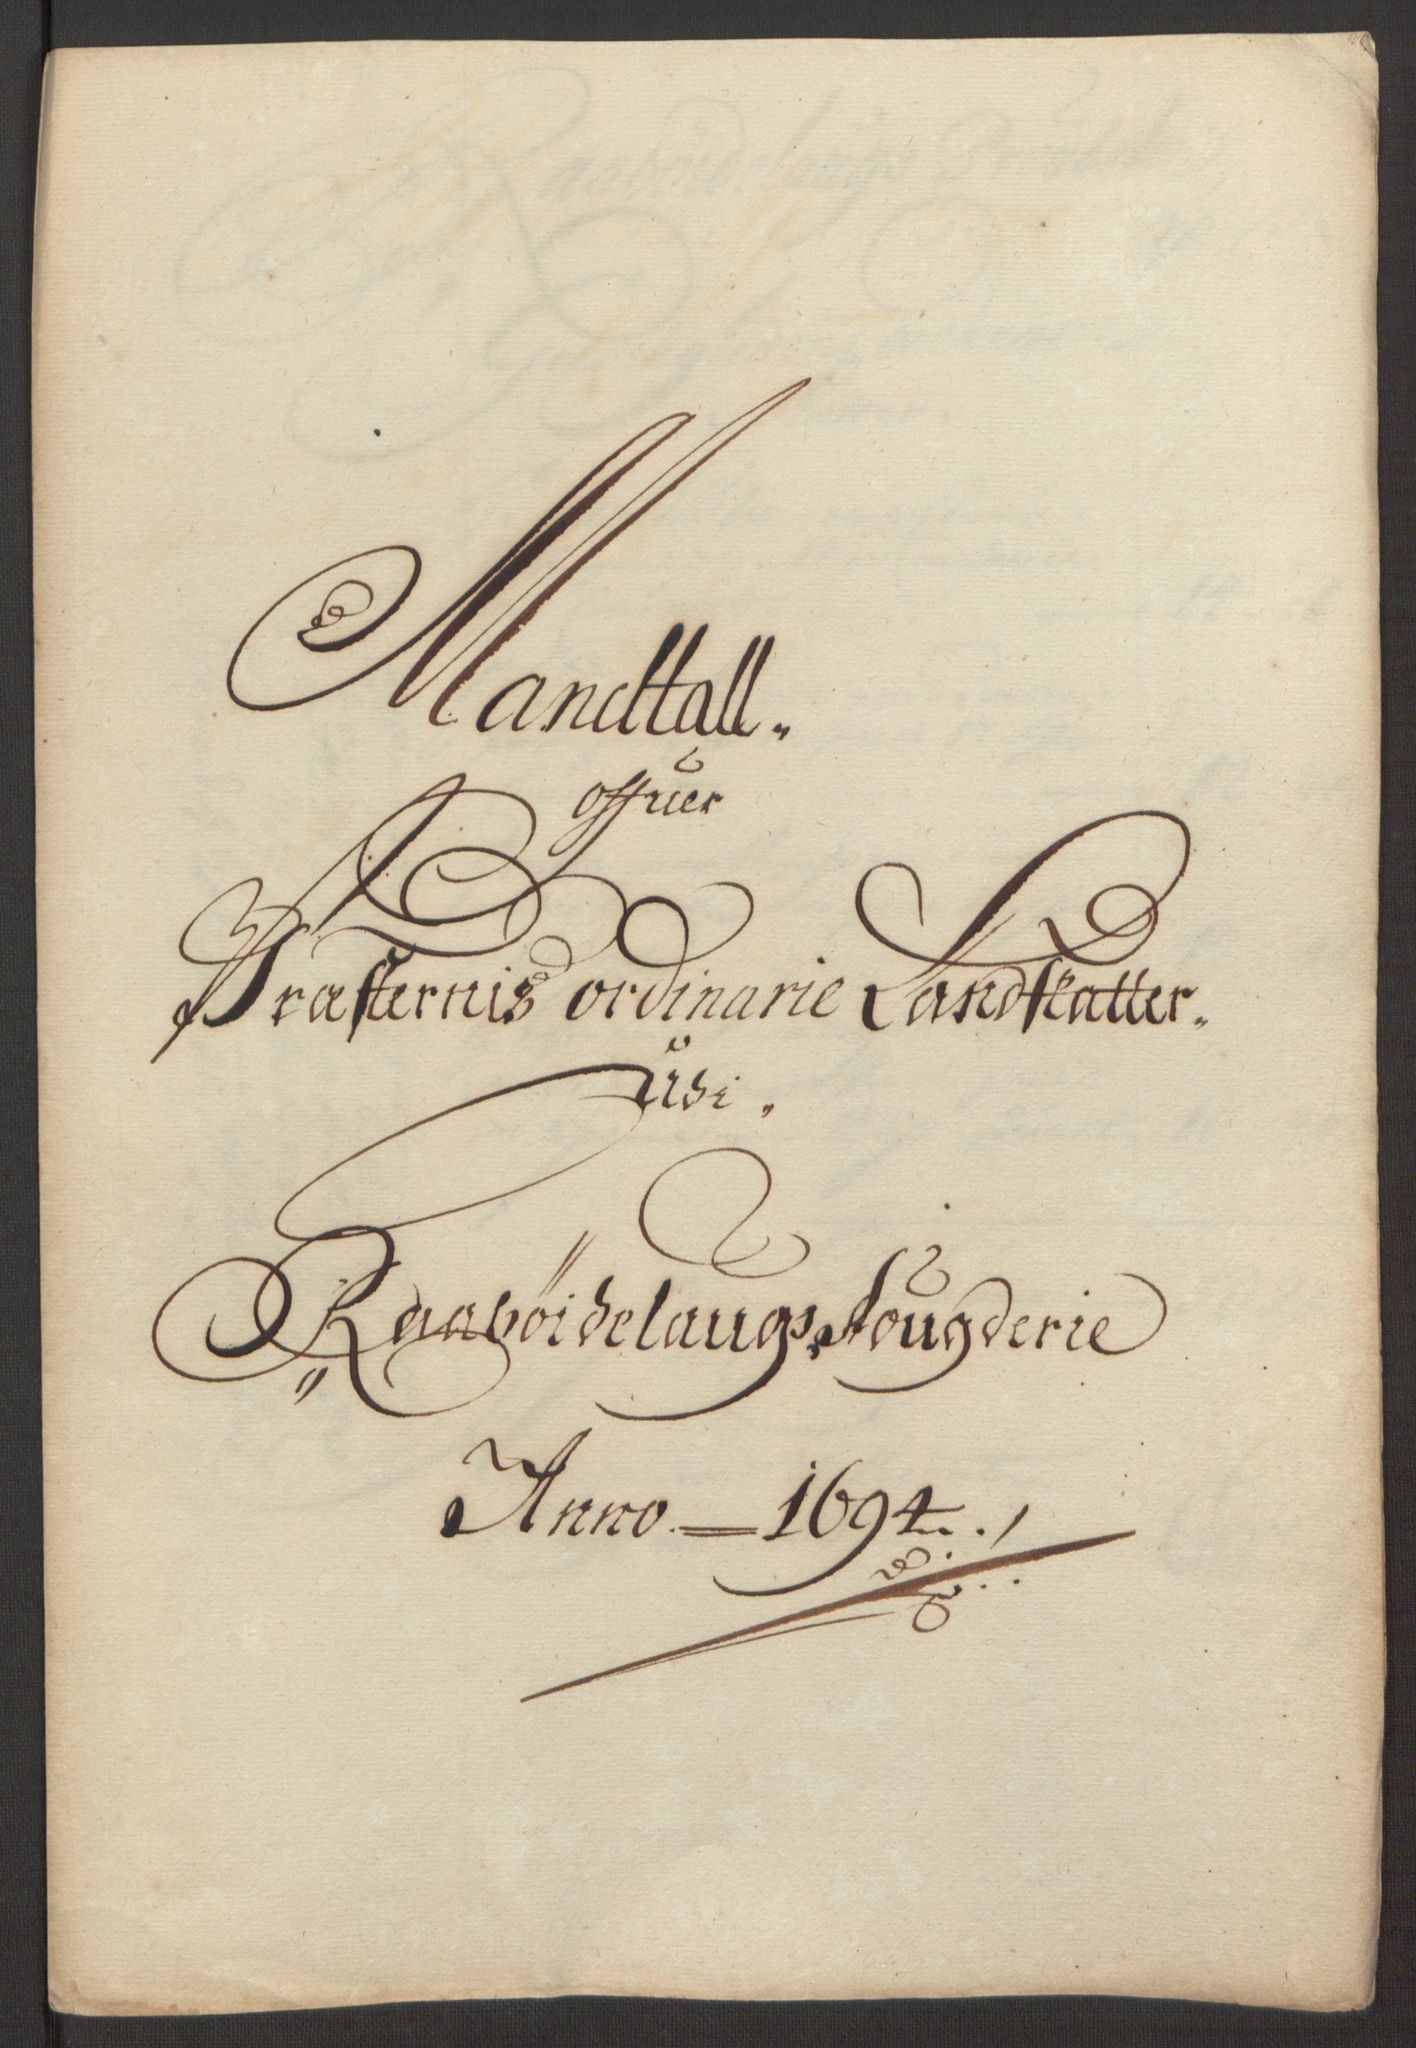 Mandtall
offuer
Præsternis ordinarie Landskatter
Udi
Raabøidelaugs fougderie
Anno 1694